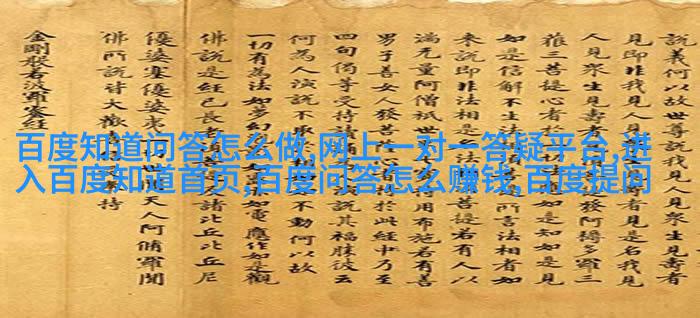 百度知道问答怎么做,网上一对一答疑平台,进
入百度知道首页,百度问答怎么赚钱,百度提问
說義何以故世尊說我見人見衆生見壽者
見即非我見人見者見是名我見
人見衆生見壽者發阿耨多羅三
菩提心者於如是知如是見
如是信解不生法所言法相者如
來說即非法相是菩提若有人以
滿无量阿僧祇世用布施若有善
男子善女人發菩於此經中乃至
四句偈等受持讀說其福勝彼云
何為人演說不取不動何以故
一切有為法如夢如電應作如是觀
佛說是經已長老諸比丘比丘尼
優婆塞優婆夷天人阿脩羅聞
佛所說皆大歡持
金剛般若波羅蜜經